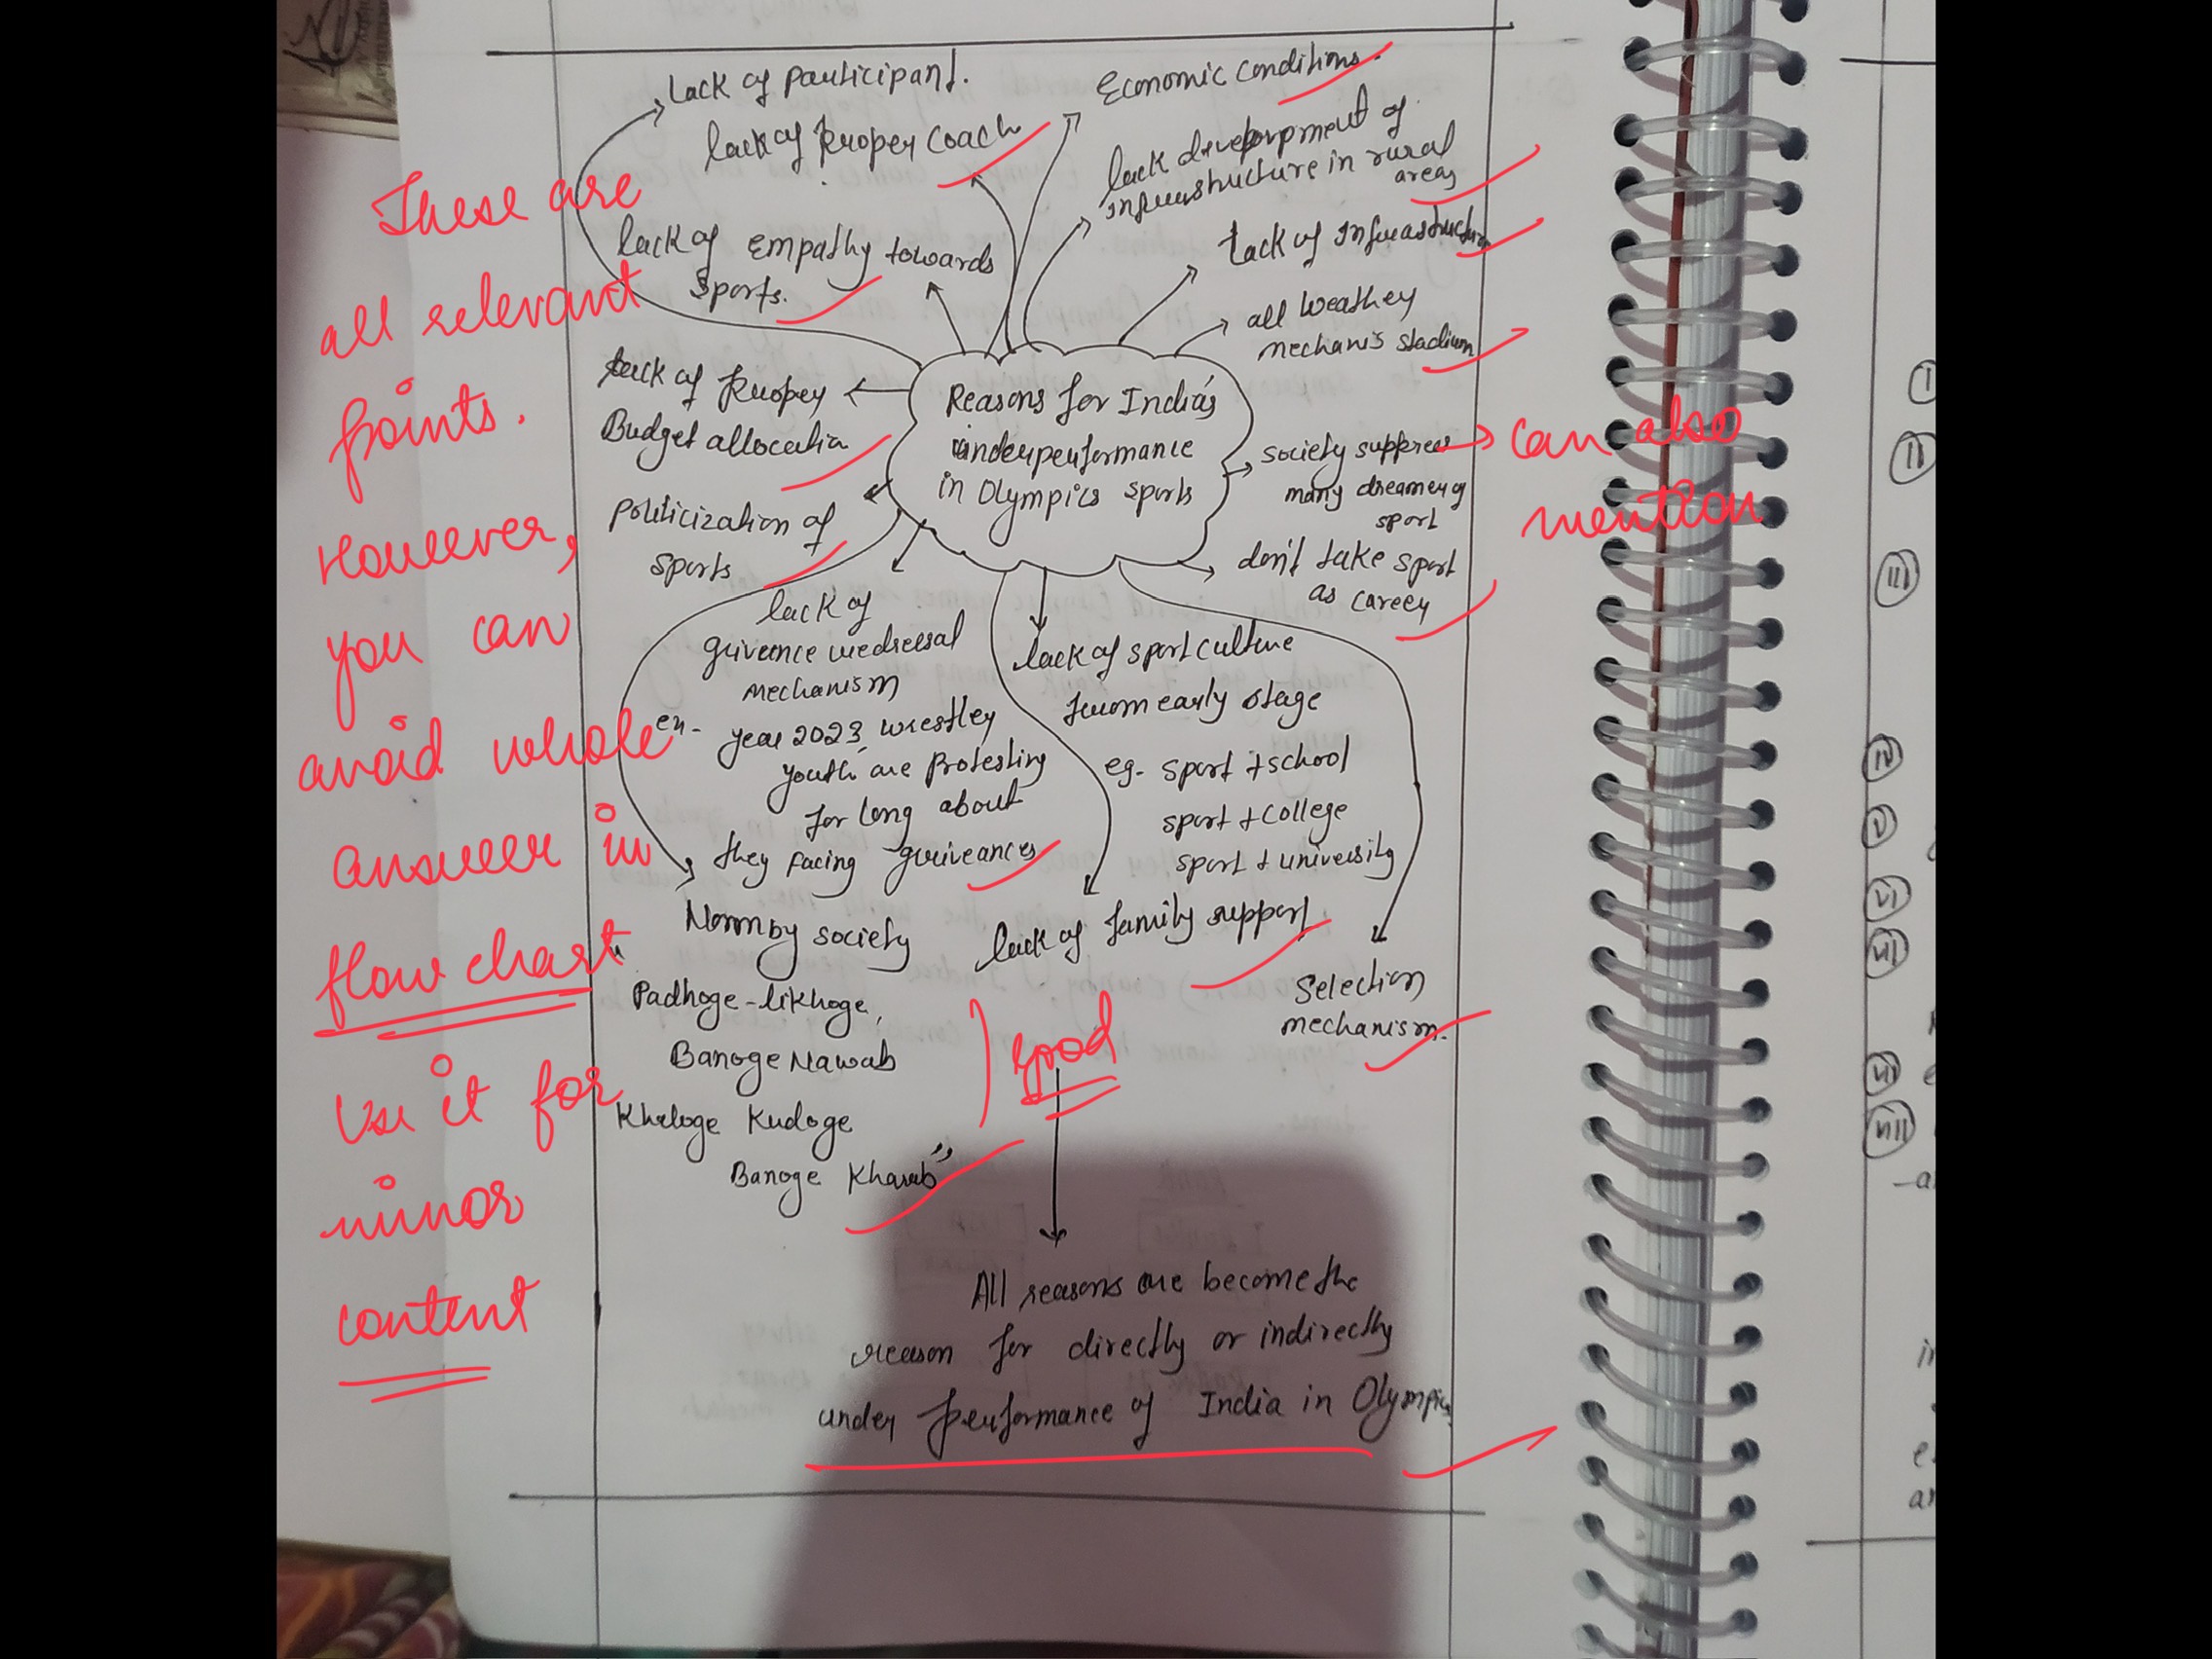 Lack of participant.
lack of proper coach
lack of empathy towards
sports.
lack of proper
Budget allocation
politicization of
sports
Economic conditions.
lack development of
infrastructure in rural
areas
Lack of Infrastructure
all weather
mechanis stadium
Reasons for India's
underperformance
in Olympics sports
society suppress
many dreamer of
sport
don't take sport
as career
lack of
grivence redressal
mechanism
ex- year 2023, wrestler
youth are protesting
for long about
they facing griveances
lack of sport culture
from early stage
eg. sport + school
sport + college
sport + university
Norm by society
lack of family support
Selection
mechanism.
"Padhoge-likhoge,
Banoge Nawab
Kheloge Kudoge
Banoge Kharab"
All reasons are become the
reason for directly or indirectly
under performance of India in Olympics
These are
all relevant
points.
However,
you can
avoid whole
answer in
flow chart
Use it for
minor
content
can also
mention
good
I
II
III
IV
V
VI
VII
VII
VIII